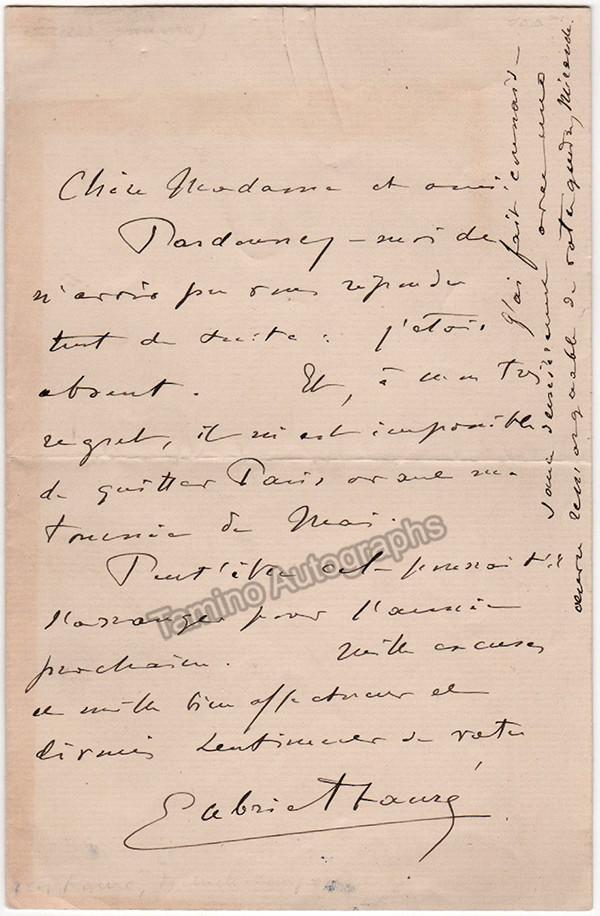 Chère Madame et amie
Pardonnez-moi de
n'avoir pu vous répondre
tout de suite : j'étais
absent. Et, à mon très
regret, il m'est impossible
de quitter Paris avant ma
tournée de Mai.
Peut'être cela pourrait-il
s'arranger pour l'année
prochaine. Mille excuses
et mille bien affectueux et
dévoués sentiments de votre
Gabriel Fauré
J'ai fait connais-
sance dernièrement avec une
œuvre remarquable de votre
Tamino Autographs